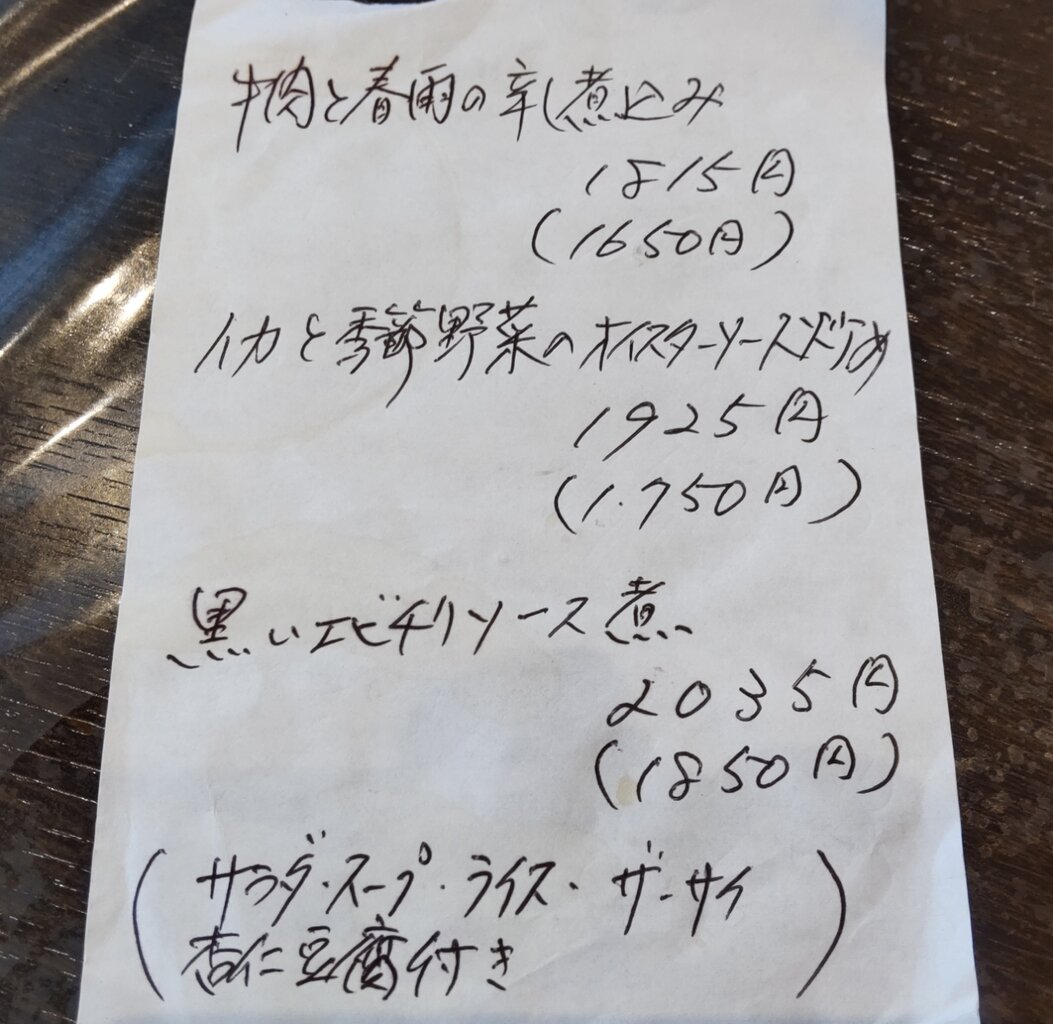 牛肉と春雨の辛し煮込み
1815円
(1650円)
イカと季節野菜のオイスターソース炒め
1925円
(1.750円)
黒いエビチリソース煮
2035円
(1850円)
(サラダ・スープ・ライス・ザーサイ
杏仁豆腐付き)